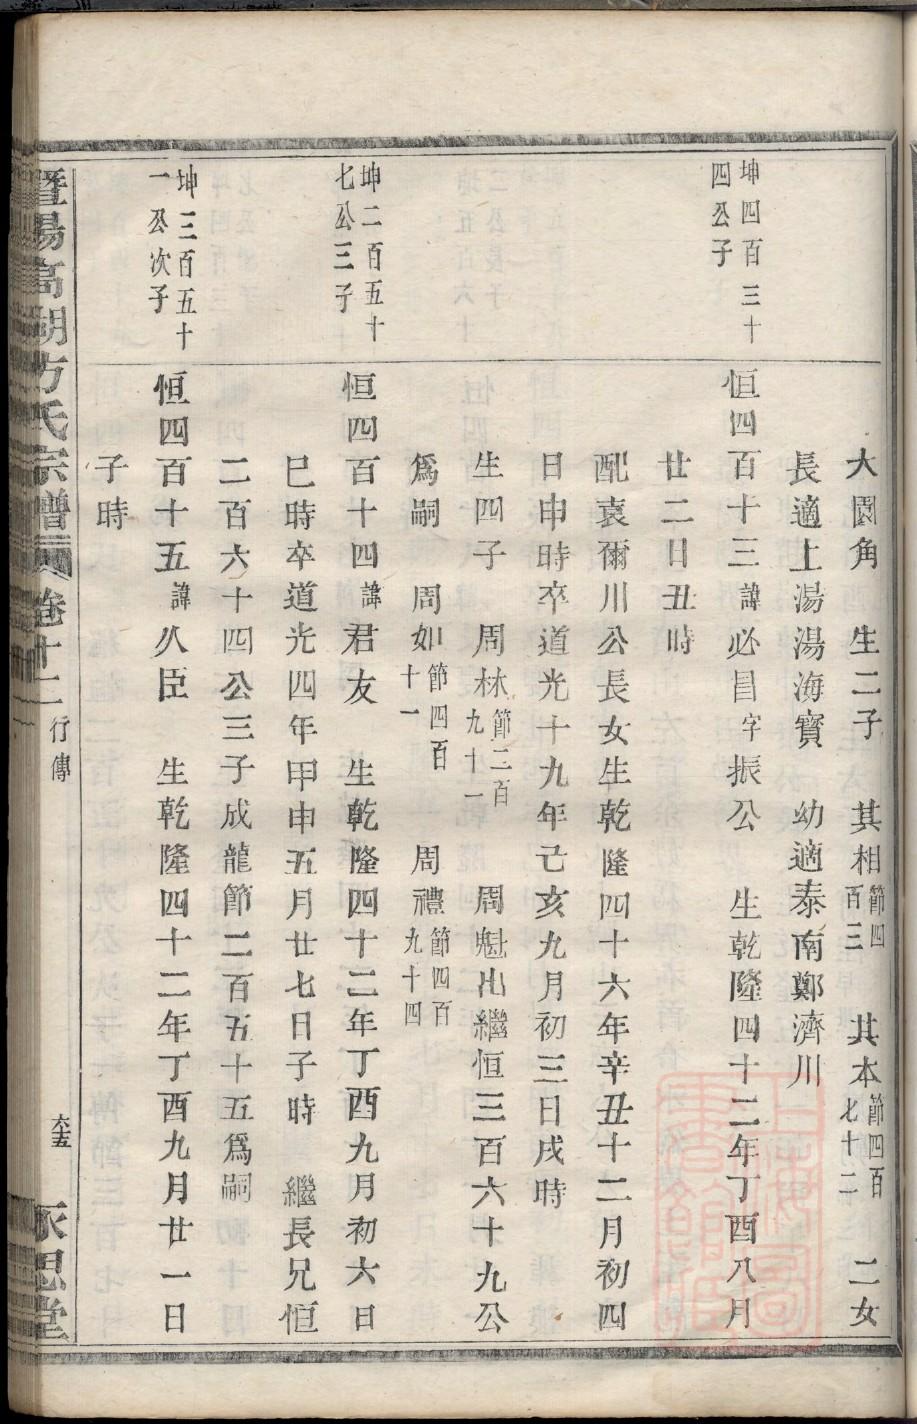 大園角 生二子 其相節四百三 其本節四百七十二 二女
長適上湯湯海寳 幼適泰南鄭濟川
坤四百三十四公子
恒四百十三諱必昌字振公 生乾隆四十二年丁酉八月
廿二日丑時
配袁爾川公長女生乾隆四十六年辛丑十二月初四
日申時卒道光十九年己亥九月初三日戌時
生四子 周林節二百九十一 周魁出繼恒三百六十九公
爲嗣 周如節四百十一 周禮節四百九十四
坤二百五十七公三子
恒四百十四諱君友 生乾隆四十二年丁酉九月初六日
巳時卒道光四年甲申五月廿七日子時 繼長兄恒
二百六十四公三子成龍節二百五十五爲嗣
坤三百五十一公次子
恒四百十五諱久臣 生乾隆四十二年丁酉九月廿一日
子時
暨陽高湖方氏宗譜 卷十二 行傳 永思堂